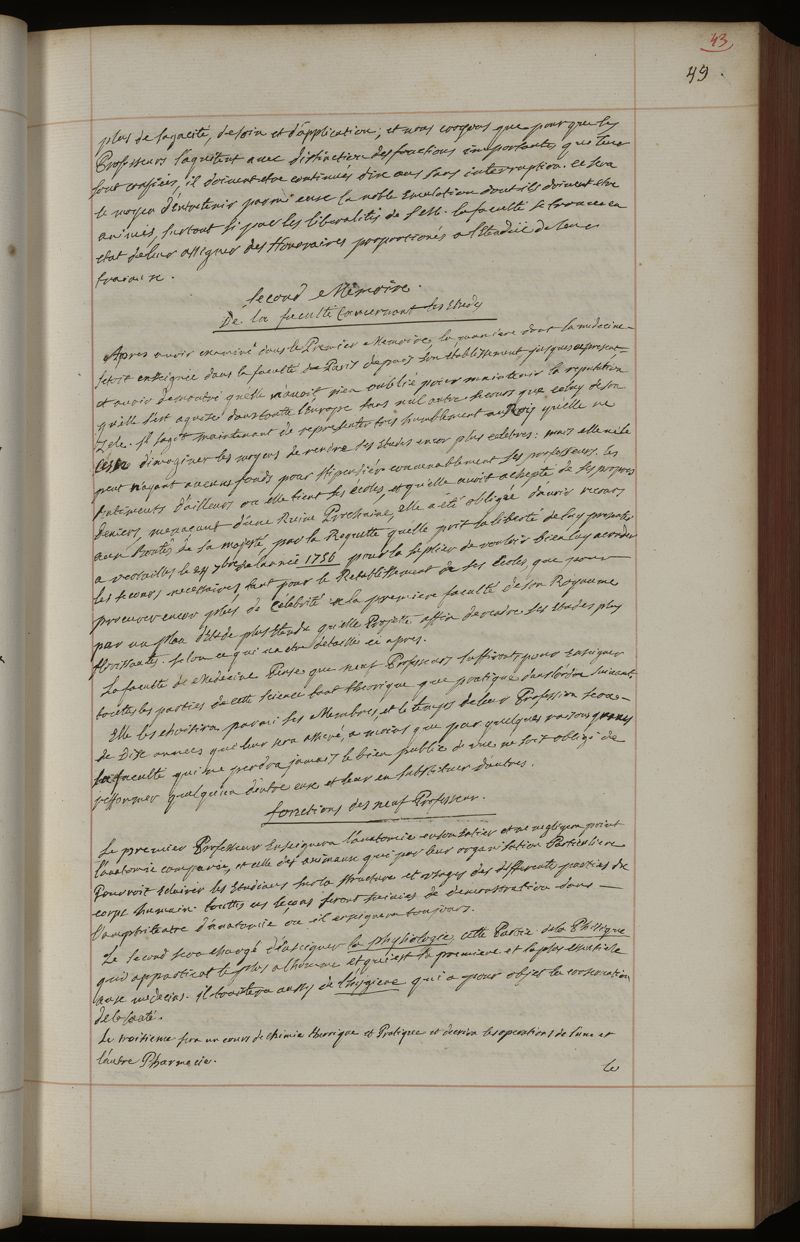 43
49.
plus de sagacité, de soin et d'application; et nous croyons que pour que les
Professeurs s'aquitent avec distinction des fonctions importantes que leur
sont confiées, il doivent etre continués dix ans sans interruption. ce sera
le moyen d'entretenir parmi eux la noble Emulation dont ils doivent etre
animés, surtout si par les liberalités de la faculté se trouve en
etat de leur assigner des Honoraires proportionés a l'Etendüe de leurs
travaux.
Second Mémoire.
De la faculté Concernant les Etudes
Apres avoir examiné dans le Premier Memoire, la maniere dont la medecine
s'etoit enseignée dans la faculté de Paris depuis son établissement jusques apresent
et avoir demontré qu'elle n'avoit rien oublié pour maintenir la reputation
qu'elle s'est aquise dans toute l'Europe sans nul autre secours que celuy de son
Zele. Il s'agit maintenant de representer tres humblement au Roy qu'elle ne
d'imaginer les moyens de rendre ses Etudes encor plus celebres: mais elle ne le
peut n'ayant aucuns fonds pour stipendier convenablement ses professeurs. les
batiments d'ailleurs ou elle tient ses écoles, et qu'elle avoit achepté de ses propres
deniers, menaçant d'une Ruine Prochaine, elle a été obligée d'avoir recours
aux Bontés de sa majesté par la Requette qu'elle prit la liberté de luy presenter
a versailles le 7bre de l'année 1756 pour la suplier de vouloir bien luy acorder
les secours necessaires tant pour le Retablissement de ses Ecoles, que pour
procurer encor plus de Célébrité a la premiere faculté de son Royaume
par un plan d'Etude plus Etendu qu'elle Projete affin de rendre ses Etudes plus
florissantes. selon ce qui va etre detaillé ci apres.
La faculté de Medecine Pense que neuf Professeurs suffiront pour enseigner
touttes les parties de cette Science tant theorique que pratique dans l'ordre suivant.
Elle les choisira parmi ses Membres, et le temps de leur Profession sera
de Dix années qui leur sera assuré, a moins que par quelques raisons graves
la faculté qui ne perdra jamais le bien public de vue ne soit obligé de
refformer quelqu'un d'entre eux et leur en substituer d'autres.
fonctions des neuf Professeur.
Le premier Professeur Enseignera l'anatomie en son entier et ne negligera point
l'anatomie comparée, et celle des animaux qui par leur organisation Particuliere
Pourroit eclairer les Etudians sur la structure et usages des differentes parties du
corps humain. touttes ces leçons seront suivies de demonstration dans
l'amphiteatre d'anatomie ou il enseignera tousjours.
Le Second sera chargé d'enseigner la phyhologie, cette Partie de la Phisique
qui appartient le plus a l'homme et qui est la premiere et la plus essentielle
aux medecins. il traitera aussy de l'hygiene qui a pour objet la conservation
de la santé.
Le troisieme fera un cours de chimie theorique et Pratique et decrira les operations de l'une et
l'autre Pharmacie.
Le